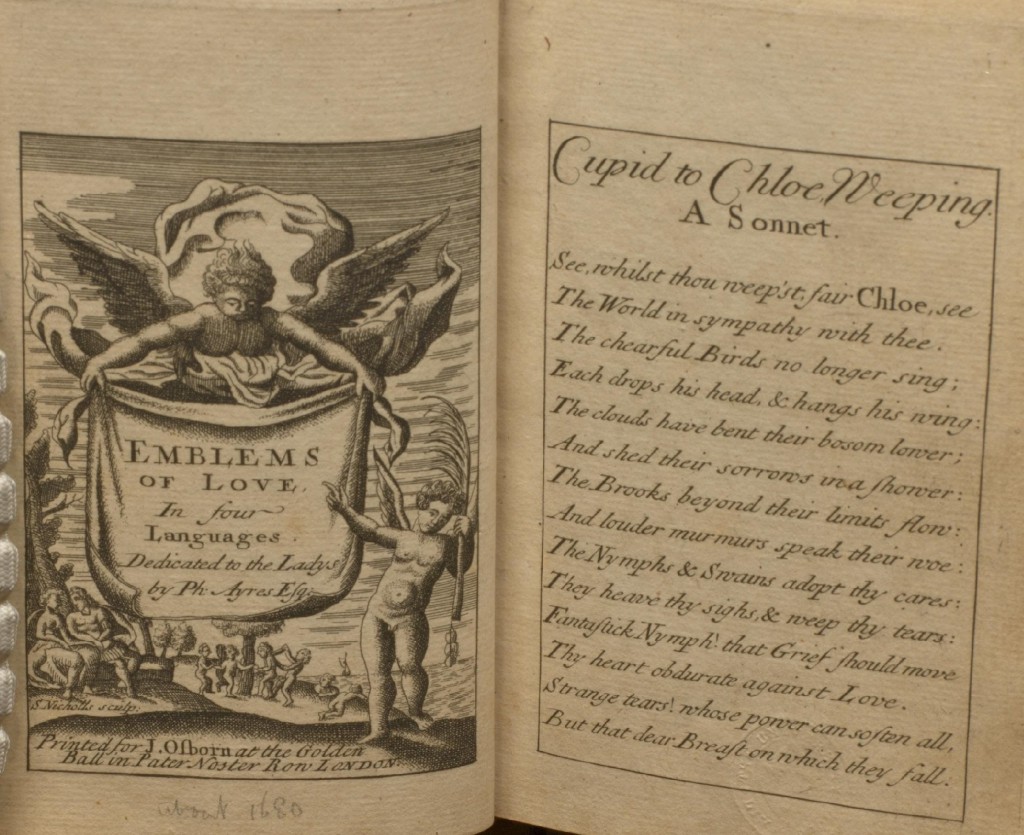 EMBLEMS
OF LOVE,
In four
Languages
Dedicated to the Ladys
by Ph: Ayres Esq:
S. Nicholls sculp:
Printed for J. Oſborn at the Golden
Ball in Pater Noster Row LONDON:
about 1680
Cupid to Chloe, Weeping.
A Sonnet.
See, whilst thou weep'st, fair Chloe, see
The World in sympathy with thee.
The chearful Birds no longer sing;
Each drops his head, & hangs his wing:
The clouds have bent their bosom lower;
And shed their sorrows in a ſhower:
The Brooks beyond their limits flow:
And louder murmurs speak their woe:
The Nymphs & Swains adopt thy cares:
They heave thy sighs, & weep thy tears:
Fantaſtick Nymph! that Grief ſhould move
Thy heart obdurate against Love.
Strange tears! whose power can soften all,
But that dear Breaſt on which they fall.